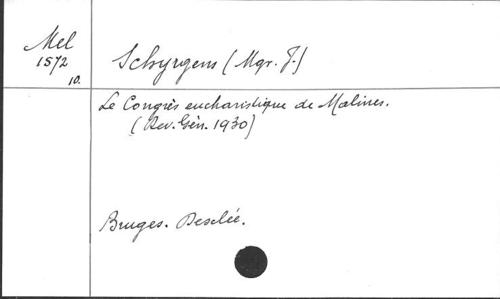 Mel
1572
10.
Schyrgens (Mgr. J.)
Le Congrès eucharistique de Malines.
(Rev. Gén. 1930)
Bruges. Desclée.